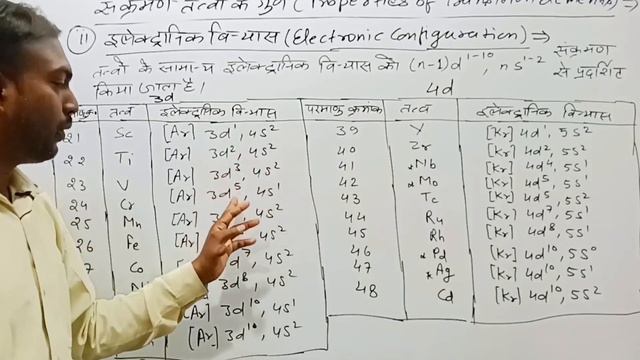 संक्रमण तत्वों के गुण (Properties of Transition elements) ⇒
(1) इलेक्ट्रॉनिक विन्यास (Electronic Configuration) ⇒
तत्वों के सामान्य इलेक्ट्रॉनिक विन्यास को (n-1)d¹⁻¹⁰, ns¹⁻² संक्रमण
से प्रदर्शित
किया जाता है।
3d 4d
तत्व इलेक्ट्रॉनिक विन्यास परमाणु क्रमांक तत्व इलेक्ट्रॉनिक विन्यास
21 Sc [Ar] 3d¹, 4s² 39 Y [Kr] 4d¹, 5s²
22 Ti [Ar] 3d², 4s² 40 Zr [Kr] 4d², 5s²
23 V [Ar] 3d³, 4s² 41 *Nb [Kr] 4d⁴, 5s¹
24 Cr [Ar] 3d⁵, 4s¹ 42 *Mo [Kr] 4d⁵, 5s¹
25 Mn [Ar] 3d, 4s² 43 Tc [Kr] 4d⁵, 5s²
26 Fe [Ar] 4s² 44 Ru [Kr] 4d⁷, 5s¹
7 Co d⁷, 4s² 45 Rh [Kr] 4d⁸, 5s¹
3d⁸, 4s² 46 *Pd [Kr] 4d¹⁰, 5s⁰
[Ar] 3d¹⁰, 4s¹ 47 *Ag [Kr] 4d¹⁰, 5s¹
[Ar] 3d¹⁰, 4s² 48 Cd [Kr] 4d¹⁰, 5s²